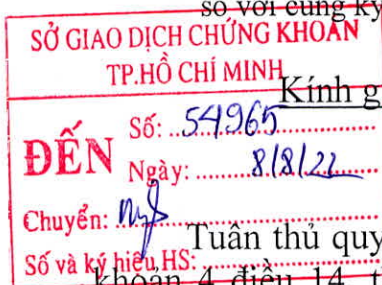 so với cùng kỳ
SỞ GIAO DỊCH CHỨNG KHOÁN
TP.HỒ CHÍ MINH
Kính g
ĐẾN
Số: 54965
Ngày: 8/8/22
Chuyển:
Tuân thủ quy
Số và ký hiệu HS:
khoản 4 điều 14, t